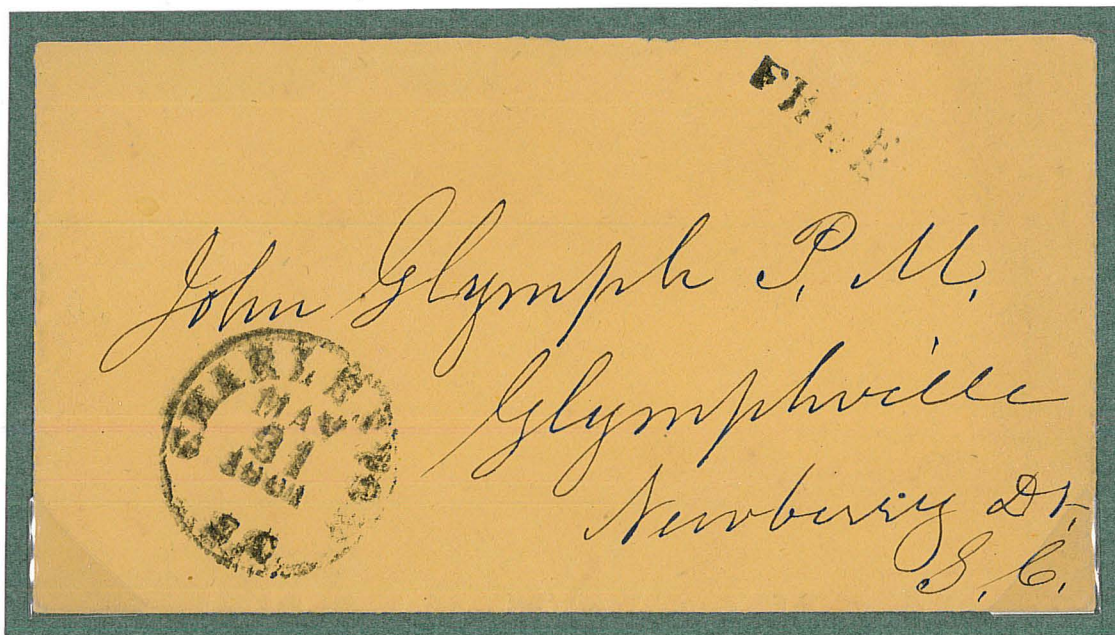 FREE
John Glymph P. M.
Glymphville
Newberry Dt.
S. C.
CHARLESTON
MAY
31
1861
S.C.